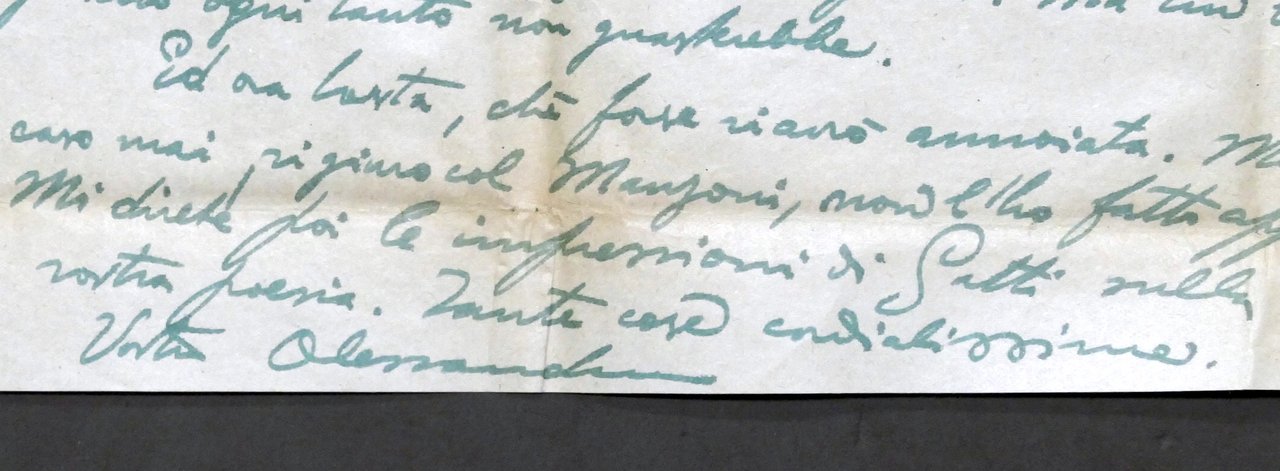 ogni tanto non guasterebbe. Ma un
Ed ora basta, chè forse vi avrò annoiata. M
caso mai, vi giuro col Manzoni, non l'ho fatto app
Mi direte poi le impressioni di Gatti sulla
vostra poesia. Tante cose cordialissime.
Vostro Alessandro